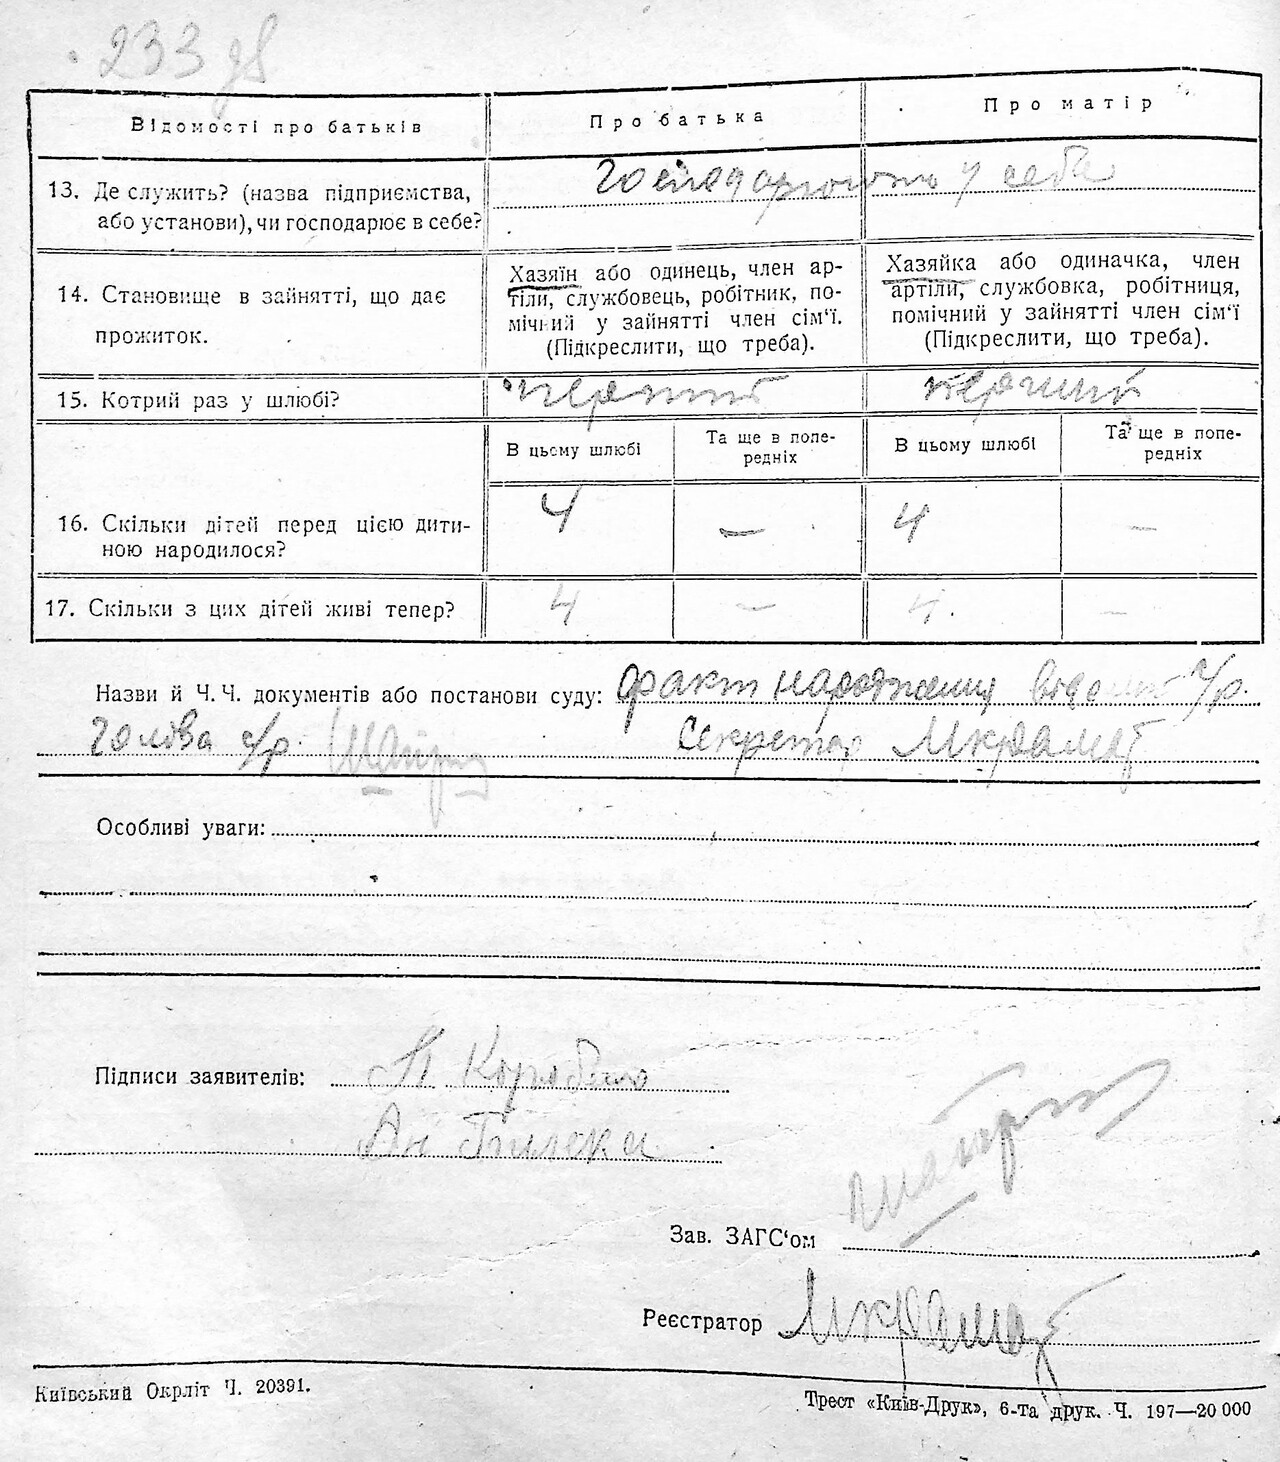 233 зв
Відомості про батьків
Про батька
Про матір
13. Де служить? (назва підприємства, або установи), чи господарює в себе?
господарюють у себе
14. Становище в зайнятті, що дає прожиток.
Хазяїн або одинець, член ар-
тіли, службовець, робітник, по-
мічний у зайнятті член сім'ї.
(Підкреслити, що треба).
Хазяйка або одиначка, член
артіли, службовка, робітниця,
помічний у зайнятті член сім'ї
(Підкреслити, що треба).
15. Котрий раз у шлюбі?
перший
перший
В цьому шлюбі
Та ще в попе-
редніх
В цьому шлюбі
Та ще в попе-
редніх
16. Скільки дітей перед цією дити-
ною народилося?
4 — 4 —
17. Скільки з цих дітей живі тепер?
4 — 4. —
Назви й Ч. Ч. документів або постанови суду: факт народження відомий с/р.
Голова с/р. Секретар
Особливі уваги:
Підписи заявителів:
Ан
Зав. ЗАГС'ом
Реєстратор
Київський Окрліт Ч. 20391.
Трест «Київ-Друк», 6-та друк. Ч. 197—20 000